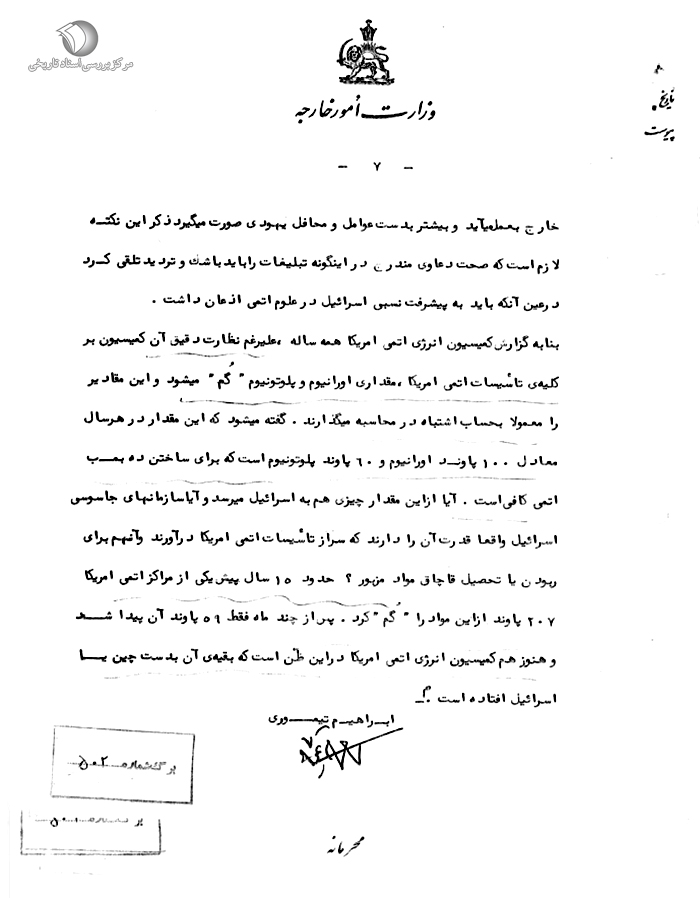 مرکز بررسی اسناد تاریخی
وزارت اُمور خارجه
تاریخ
پیوست
- ۷ -
خارج بعمل میآید و بیشتر بدست عوامل و محافل یهودی صورت میگیرد ذکر این نکته
لازم است که صحت دعاوی مندرج در اینگونه تبلیغات را باید باشك و تردید تلقی کرد
در عین آنکه باید به پیشرفت نسبی اسرائیل در علوم اتمی اذعان داشت .
بنابه گزارش کمیسیون انرژی اتمی امریکا همه ساله ، علیرغم نظارت دقیق آن کمیسیون بر
کلیه‌ی تاٌسیسات اتمی امریکا ، مقداری اورانیوم و پلوتونیوم " گُم " میشود و این مقادیر
را معمولا بحساب اشتباه در محاسبه میگذارند . گفته میشود که این مقدار در هرسال
معادل ۱۰۰ پاوند اورانیوم و ۶۰ پاوند پلوتونیوم است که برای ساختن ده بمب
اتمی کافی است . آیا از این مقدار چیزی هم به اسرائیل میرسد و آیا سازمانهای جاسوسی
اسرائیل واقعا قدرت آن را دارند که سر از تاٌسیسات اتمی امریکا درآورند وآنهم برای
ربودن یا تحصیل قاچاق مواد مزبور ؟ حدود ۱۵ سال پیش یکی از مراکز اتمی امریکا
۲۰۷ پاوند از این مواد را " گُم " کرد . پس از چند ماه فقط ۵۹ پاوند آن پیدا شد
و هنوز هم کمیسیون انرژی اتمی امریکا در این ظن است که بقیه‌ی آن بدست چین یا
اسرائیل افتاده است .
ابراهیم تیموری
برگ شماره ۵۰۲
بر شماره ۵۰۱
محرمانه